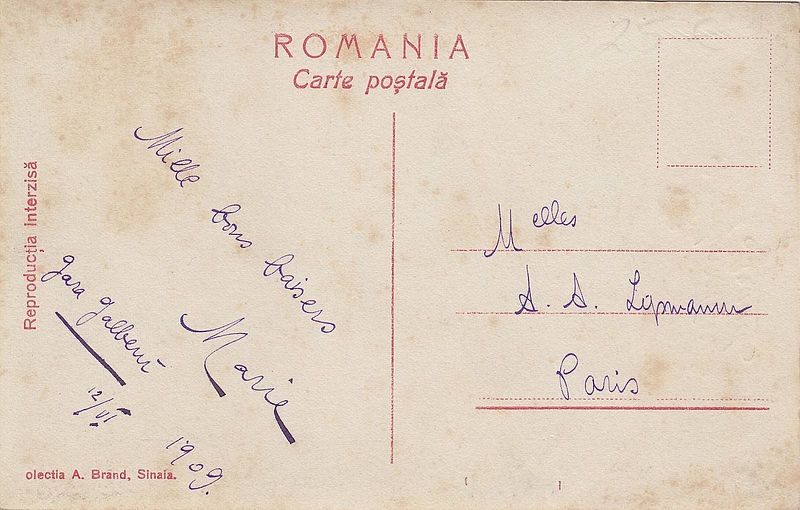 ROMANIA
Carte poștală
Reproducția interzisă
Mille bons baisers
Marie
gara Galbeni
12/VI 1909.
Melles
A. A. Lipmann
Paris
olectia A. Brand, Sinaia.